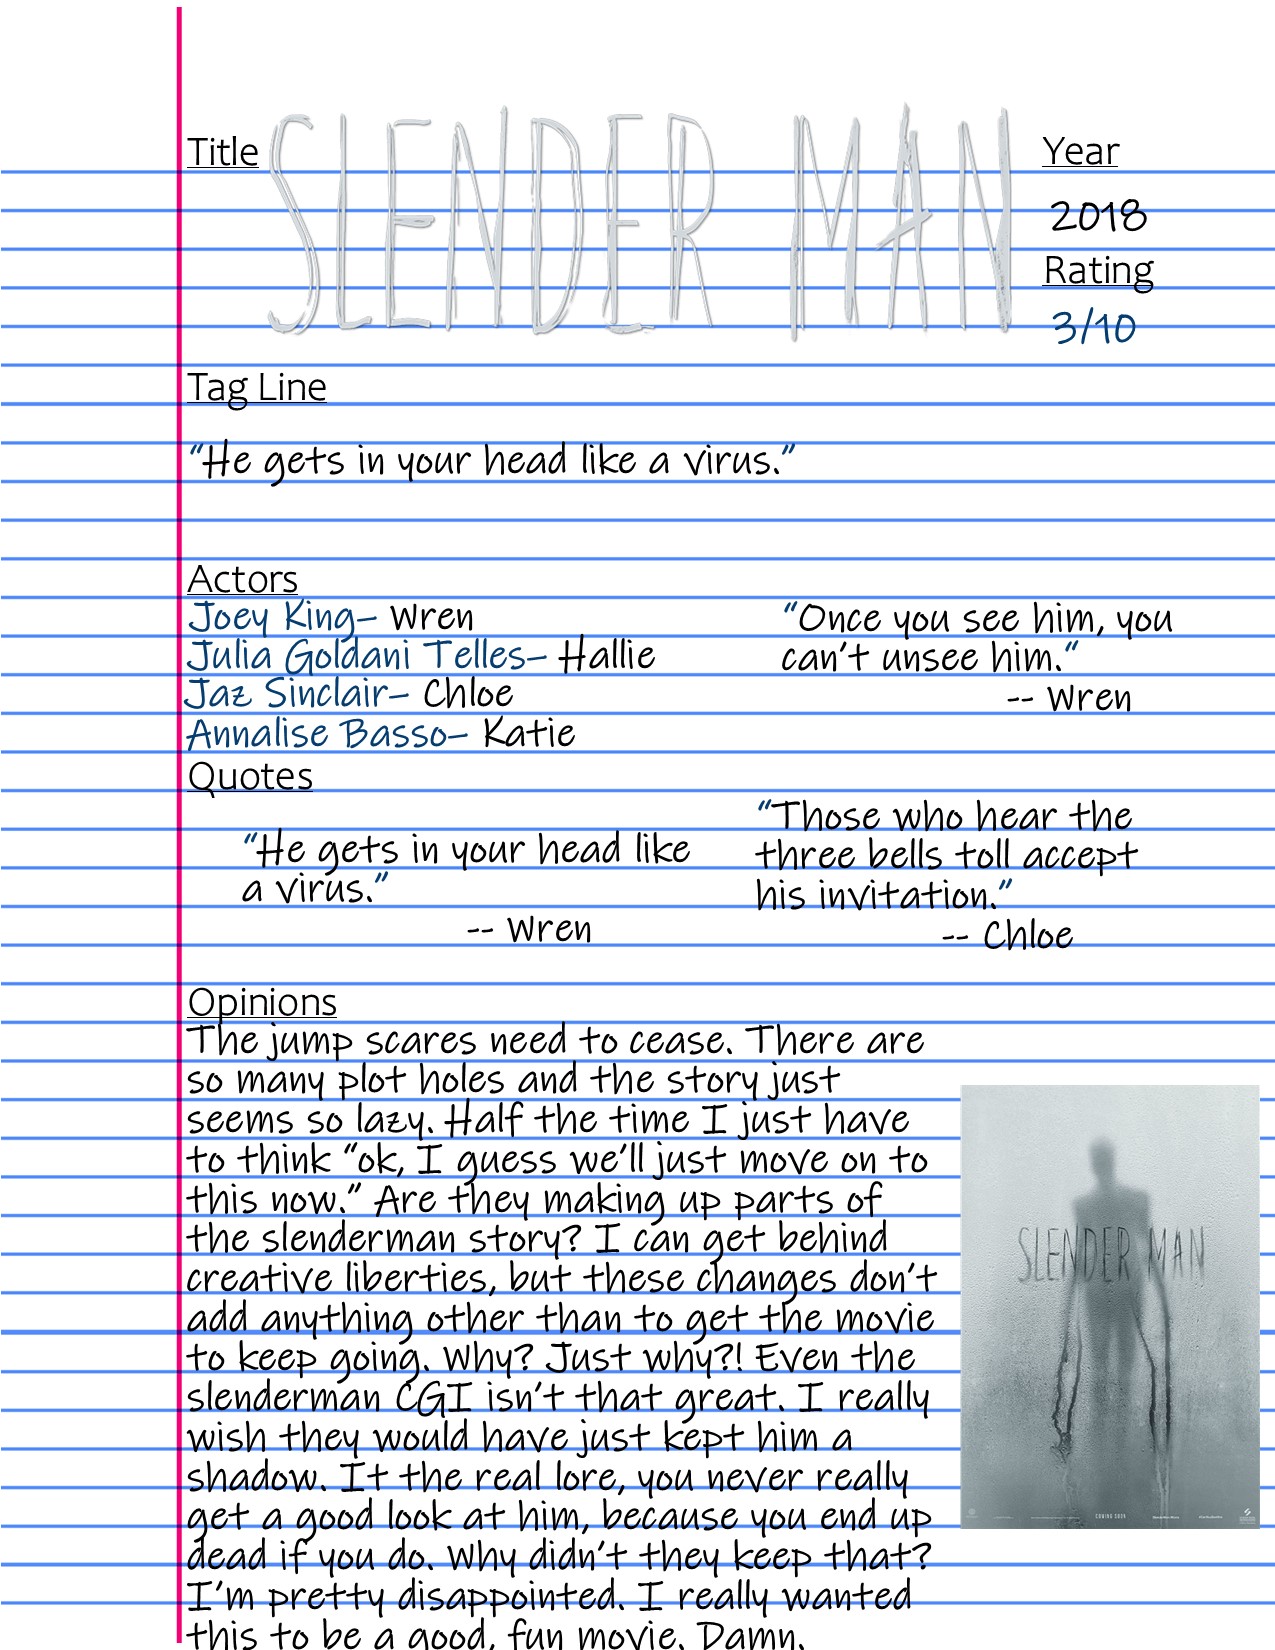 Title SLENDER MAN Year
2018
Rating
3/10
Tag Line
“He gets in your head like a virus.”
Actors
Joey King– Wren
Julia Goldani Telles– Hallie
Jaz Sinclair– Chloe
Annalise Basso– Katie
“Once you see him, you
can’t unsee him.“
-- Wren
Quotes
“He gets in your head like
a virus.”
-- Wren
“Those who hear the
three bells toll accept
his invitation.”
-- Chloe
Opinions
The jump scares need to cease. There are
so many plot holes and the story just
seems so lazy. Half the time I just have
to think “ok, I guess we’ll just move on to
this now.” Are they making up parts of
the slenderman story? I can get behind
creative liberties, but these changes don’t
add anything other than to get the movie
to keep going. Why? Just why?! Even the
slenderman CGI isn’t that great. I really
wish they would have just kept him a
shadow. It the real lore, you never really
get a good look at him, because you end up
dead if you do. Why didn’t they keep that?
I’m pretty disappointed. I really wanted
this to be a good, fun movie. Damn.
SLENDER MAN
COMING SOON